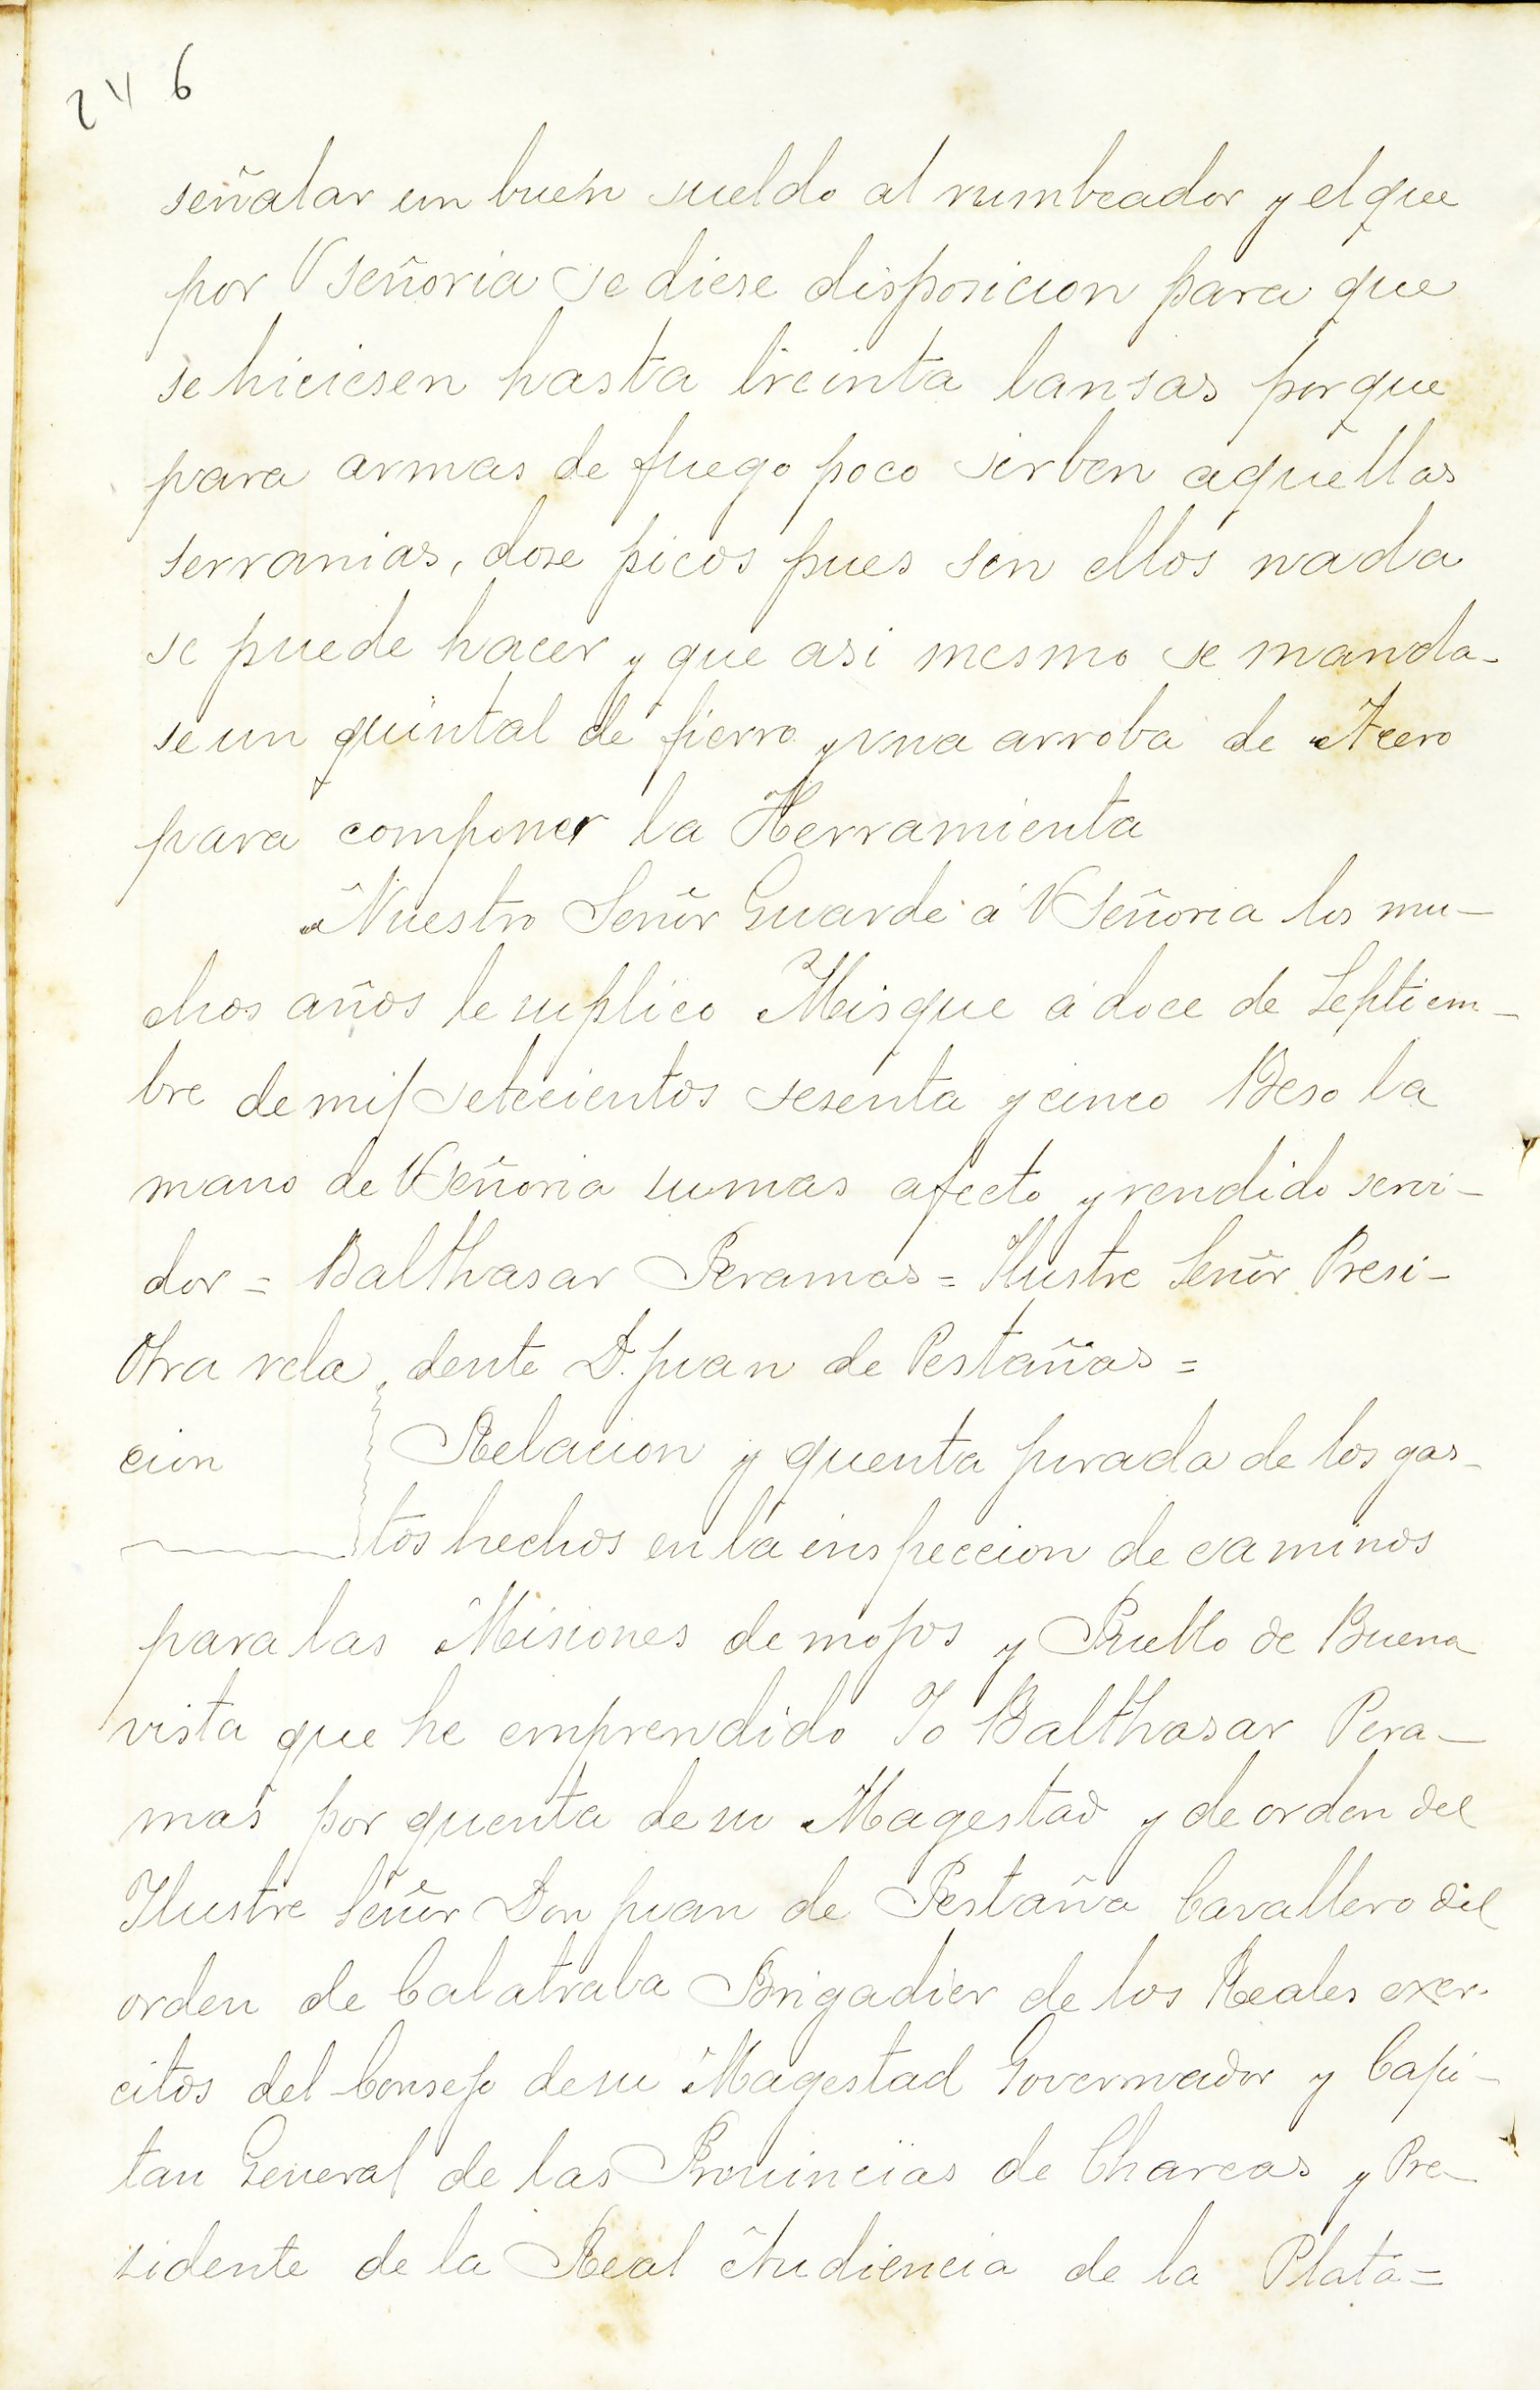 246
señalar un buen sueldo al rumbeador y el que
por VSeñoria se diese disposicion para que
se hiciesen hasta treinta lansas porque
para armas de fuego poco sirben aquellas
serranias, dose picos pues sin ellos nada
se puede hacer y que asi mesmo se manda-
se un quintal de fierro y vna arroba de Acero
para componer la Herramienta
Nuestro Señor Guarde á VSeñoria los mu-
chos años le suplico Misque á doce de Septiem-
bre de mil setecientos sesenta y cinco Beso la
mano de VSeñoria su mas afecto y rendido servi-
dor = Balthasar Peramas = Ilustre Señor Presi-
dente D. Juan de Pestañas =
Otra rela
cion
Relacion y quenta jurada de los gas-
tos hechos en la inspeccion de caminos
para las Misiones de mojos y Pueblo de Buena
vista que he emprendido Yo Balthasar Pera-
mas por quenta de su Magestad y de orden del
Ilustre Señor Don Juan de Pestaña Cavallero del
orden de Calatraba Brigadier de los Reales exer-
citos del Consejo de su Magestad Governador y Capi-
tan General de las Prouincias de Charcas y Pre-
sidente de la Real Audiencia de la Plata=